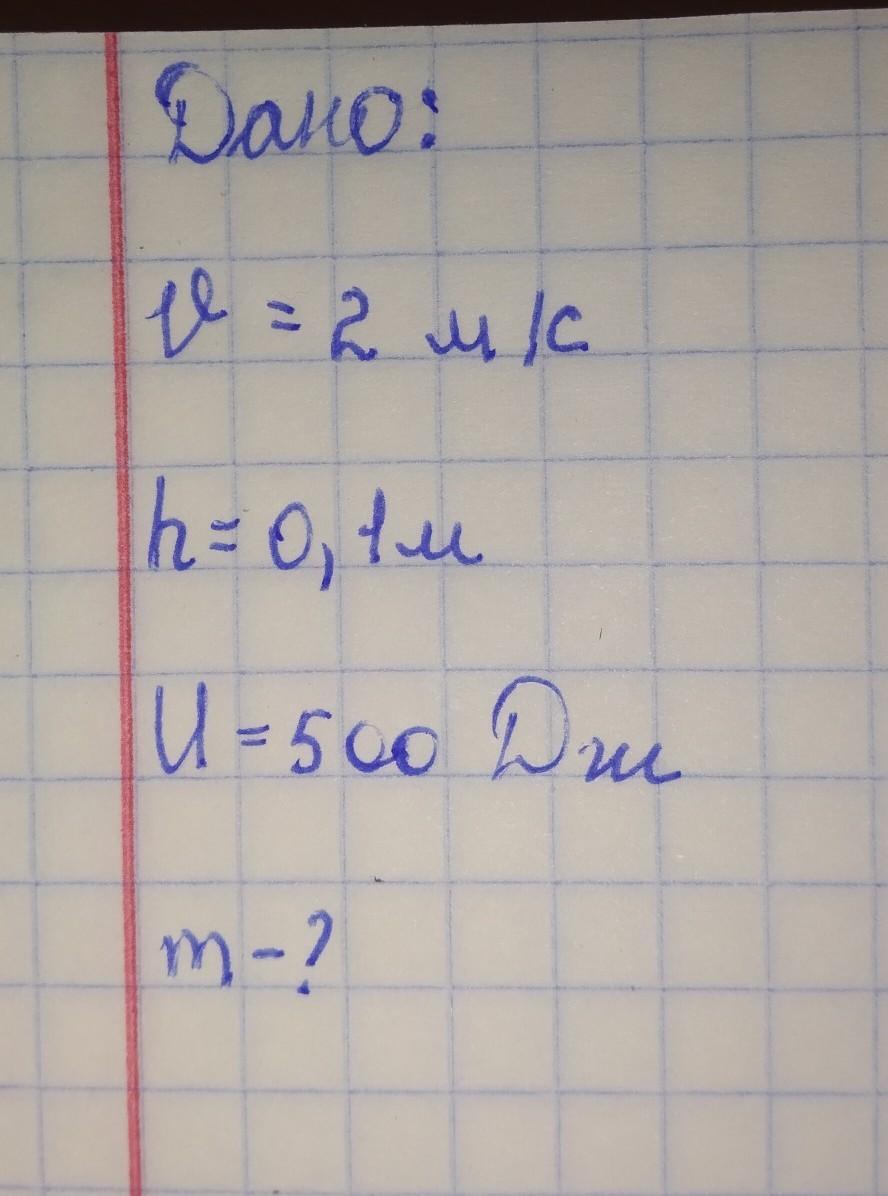 Дано:
V = 2 м/с
h = 0,1м
U = 500 Дж
m - ?